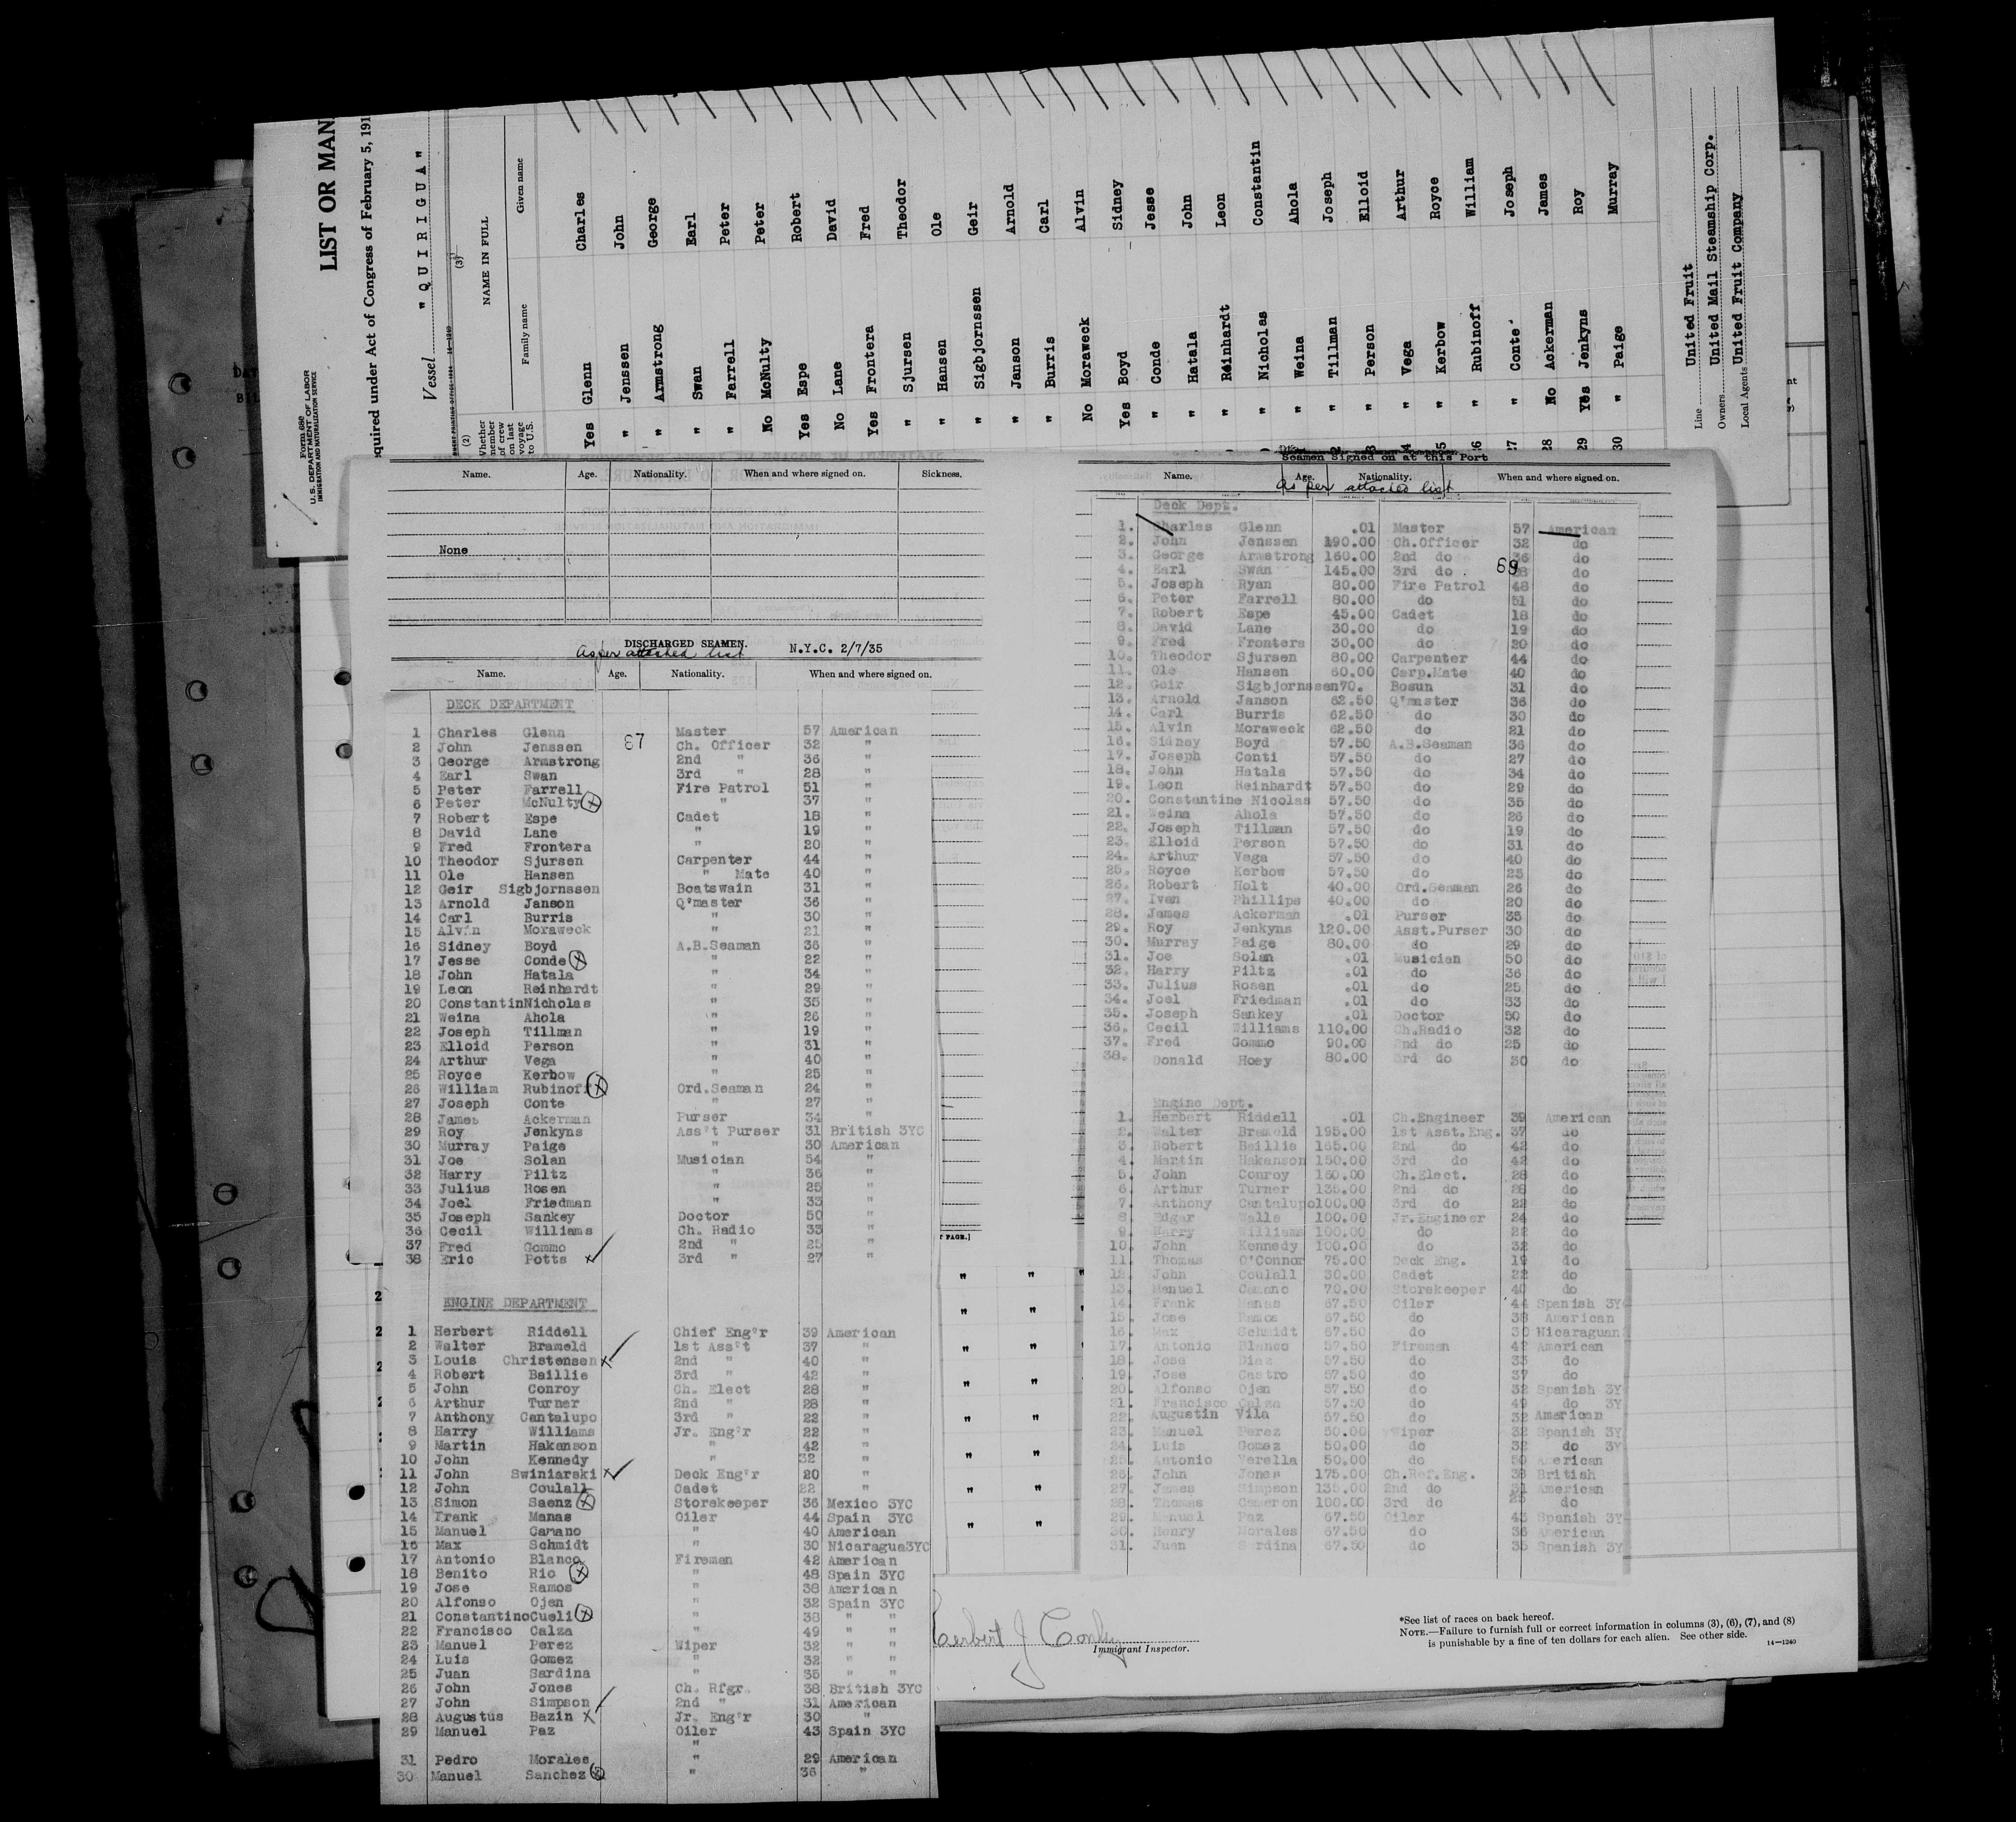 Form 686
U. S. DEPARTMENT OF LABOR
IMMIGRATION AND NATURALIZATION SERVICE
LIST OR MAN
equired under Act of Congress of February 5, 191
Vessel " Q U I R I G U A "
(2) (3)
Whether member of crew on last voyage to U.S.
NAME IN FULL
Family name Given name
Yes Glenn Charles
" Jenssen John
" Armstrong George
" Swan Earl
" Farrell Peter
No McNulty Peter
Yes Espe Robert
No Lane David
Yes Frontera Fred
" Sjursen Theodor
" Hansen Ole
" Sigbjornssen Geir
" Janson Arnold
" Burris Carl
No Moraweck Alvin
Yes Boyd Sidney
" Conde Jesse
" Hatala John
" Reinhardt Leon
" Nicholas Constantin
" Weina Ahola
" Tillman Joseph
" Person Elloid
" Vega Arthur
" Kerbow Royce
" Rubinoff William
27 " Conte Joseph
28 No Ackerman James
29 Yes Jenkyns Roy
30 " Paige Murray
Line United Fruit
Owners United Mail Steamship Corp.
Local Agents United Fruit Company
Name. Age. Nationality. When and where signed on. Sickness.
None
DISCHARGED SEAMEN. N.Y.C. 2/7/35
As per attached list
Name. Age. Nationality. When and where signed on.
DECK DEPARTMENT
67
1 Charles Glenn Master 57 American
2 John Jenssen Ch. Officer 32 "
3 George Armstrong 2nd " 36 "
4 Earl Swan 3rd " 28 "
5 Peter Farrell Fire Patrol 51 "
6 Peter McNulty " 37 "
7 Robert Espe Cadet 18 "
8 David Lane " 19 "
9 Fred Frontera " 20 "
10 Theodor Sjursen Carpenter 44 "
11 Ole Hansen " Mate 40 "
12 Geir Sigbjornssen Boatswain 31 "
13 Arnold Janson Q'master 36 "
14 Carl Burris " 30 "
15 Alvin Moraweck " 21 "
16 Sidney Boyd A.B.Seaman 36 "
17 Jesse Conde " 22 "
18 John Hatala " 34 "
19 Leon Reinhardt " 29 "
20 ConstantinNicholas " 35 "
21 Weina Ahola " 26 "
22 Joseph Tillman " 19 "
23 Elloid Person " 31 "
24 Arthur Vega " 40 "
25 Royce Kerbow " 25 "
26 William Rubinoff Ord.Seaman 24 "
27 Joseph Conte " 27 "
28 James Ackerman Purser 34 "
29 Roy Jenkyns Ass't Purser 31 British 3YC
30 Murray Paige " 30 American
31 Joe Solan Musician 54 "
32 Harry Piltz " 36 "
33 Julius Rosen " 25 "
34 Joel Friedman " 33 "
35 Joseph Sankey Doctor 50 "
36 Cecil Williams Ch. Radio 33 "
37 Fred Gommo 2nd " 25 "
38 Eric Potts 3rd " 27 "
ENGINE DEPARTMENT
1 Herbert Riddell Chief Eng'r 39 American
2 Walter Brameld 1st Ass't 37 "
3 Louis Christensen 2nd " 40 "
4 Robert Baillie 3rd " 42 "
5 John Conroy Ch. Elect 28 "
6 Arthur Turner 2nd " 28 "
7 Anthony Cantalupo 3rd " 22 "
8 Harry Williams Jr. Eng'r 22 "
9 Martin Hakanson " 42 "
10 John Kennedy " 32 "
11 John Swiniarski Deck Eng'r 20 "
12 John Coulall Cadet 22 "
13 Simon Saenz Storekeeper 36 Mexico 3YC
14 Frank Manas Oiler 44 Spain 3YC
15 Manuel Camano " 40 American
16 Max Schmidt " 30 Nicaragua3YC
17 Antonio Blanco Fireman 42 American
18 Benito Rio " 48 Spain 3YC
19 Jose Ramos " 38 American
20 Alfonso Ojen " 32 Spain 3YC
21 ConstantinoCueli " 38 " "
22 Francisco Calza " 49 " "
23 Manuel Perez Wiper 32 " "
24 Luis Gomez " 32 " "
25 Juan Sardina " 35 " "
26 John Jones Ch. Rfgr. 38 British 3YC
27 John Simpson 2nd " 31 American
28 Augustus Bazin Jr. Eng'r 30 "
29 Manuel Paz Oiler 43 Spain 3YC
"
31 Pedro Morales " 29 American
30 Manuel Sanchez " 36 "
Seamen Signed on at this Port
Name. Age. Nationality. When and where signed on.
As per attached list
Deck Dept.
69
1. Charles Glenn .01 Master 57 American
2. John Jenssen 190.00 Ch.Officer 32 do
3. George Armstrong 160.00 2nd do 36 do
4. Earl Swan 145.00 3rd do 28 do
5. Joseph Ryan 80.00 Fire Patrol 48 do
6. Peter Farrell 80.00 do 51 do
7. Robert Espe 45.00 Cadet 18 do
8. David Lane 30.00 do 19 do
9. Fred Frontera 30.00 do 20 do
10. Theodor Sjursen 80.00 Carpenter 44 do
11. Ole Hansen 60.00 Carp.Mate 40 do
12. Geir Sigbjornssen70. Bosun 31 do
13. Arnold Janson 62.50 Q'master 36 do
14. Carl Burris 62.50 do 30 do
15. Alvin Moraweck 62.50 do 21 do
16. Sidney Boyd 57.50 A.B.Seaman 36 do
17. Joseph Conti 57.50 do 27 do
18. John Hatala 57.50 do 34 do
19. Leon Reinhardt 57.50 do 29 do
20. Constantine Nicolas 57.50 do 35 do
21. Weina Ahola 57.50 do 26 do
22. Joseph Tillman 57.50 do 19 do
23. Elloid Person 57.50 do 31 do
24. Arthur Vega 57.50 do 40 do
25. Royce Kerbow 57.50 do 25 do
26. Robert Holt 40.00 Ord.Seaman 26 do
27. Ivan Phillips 40.00 do 20 do
28. James Ackerman .01 Purser 35 do
29. Roy Jenkyns 120.00 Asst.Purser 30 do
30. Murray Paige 80.00 do 29 do
31. Joe Solan .01 Musician 50 do
32. Harry Piltz .01 do 36 do
33. Julius Rosen .01 do 25 do
34. Joel Friedman .01 do 33 do
35. Joseph Sankey .01 Doctor 50 do
36. Cecil Williams 110.00 Ch.Radio 32 do
37. Fred Gommo 90.00 2nd do 25 do
38. Donald Hoey 80.00 3rd do 30 do
Engine Dept.
1. Herbert Riddell .01 Ch.Engineer 39 American
2. Walter Brameld 195.00 1st Asst.Eng. 37 do
3. Robert Baillie 165.00 2nd do 42 do
4. Martin Hakanson 150.00 3rd do 42 do
5. John Conroy 160.00 Ch.Elect. 28 do
6. Arthur Turner 135.00 2nd do 28 do
7. Anthony Cantalupo100.00 3rd do 22 do
8. Edgar Walls 100.00 Jr.Engineer 24 do
9. Harry Williams 100.00 do 22 do
10. John Kennedy 100.00 do 32 do
11. Thomas O'Connor 75.00 Deck Eng. 19 do
12. John Coulall 30.00 Cadet 22 do
13. Manuel Camano 70.00 Storekeeper 40 do
14. Frank Manas 67.50 Oiler 44 Spanish 3Y
15. Jose Ramos 67.50 do 38 American
16. Max Schmidt 67.50 do 30 Nicaraguan
17. Antonio Blanco 57.50 Fireman 42 American
18. Jose Diaz 57.50 do 33 do
19. Jose Castro 57.50 do 37 do
20. Alfonso Ojen 57.50 do 32 Spanish 3Y
21. Francisco Calza 57.50 do 49 do 3Y
22. Augustin Vila 57.50 do 32 American
23. Manuel Perez 50.00 Wiper 32 Spanish 3Y
24. Luis Gomez 50.00 do 32 do 3Y
25. Antonio Varella 50.00 do 50 American
26. John Jones 175.00 Ch.Ref.Eng. 38 British
27. James Simpson 135.00 2nd do 31 American
28. Thomas Cameron 100.00 3rd do 25 do
29. Manuel Paz 67.50 Oiler 43 Spanish 3Y
30. Henry Morales 67.50 do 36 American
31. Juan Sardina 67.50 do 35 Spanish 3Y
T PAGE.]
Herbert J Conley
Immigrant Inspector.
*See list of races on back hereof.
NOTE.—Failure to furnish full or correct information in columns (3), (6), (7), and (8)
is punishable by a fine of ten dollars for each alien. See other side.
14—1240